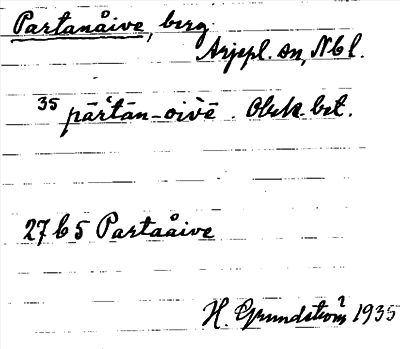 Partanåive, berg.
Arjepl. sn, Nbl.
35 pàrtān-oivē. Obek. bet.
27 b 5 Partaåive
H. Grundström 1935